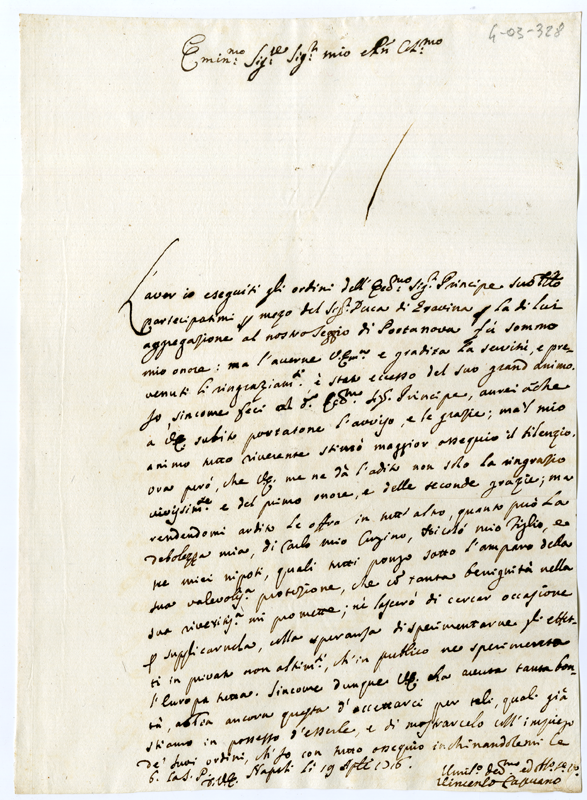 4-03-328
Emin.mo Sig.re Sig.r mio
L'aver io eseguiti gli ordini dell' Ecc.mo Sig.r Principe suo
partecipatimi p mezo del Sig.r Duca di Gravina p la di lui
aggregazione al nostro Seggio di Portanova fu sommo
mio onore: ma l'averne V.Em.za e gradita la servitù, e pre-
venuti li ringraziam.ti è stato eccesso del suo grand'animo.
Io, sincome feci al d.o Ecc.mo Sig.r Principe, aurei anche
a V.E. subito portatone l'avviso, e le grazie; ma'l mio
animo tutto riverente stimò maggior ossequio il silenzio.
Ora però, che V.E. me ne dà l'adito non solo la ringrazio
vivissim.te e del primo onore, e delle seconde grazie; ma
rendendomi ardito le offro in tutt'altro, quanto può la
debolezza mia, di Carlo mio Cugino, Nicolò mio Figlio, e
tre miei nipoti, quali tutti pongo sotto l'amparo della
sua valevoliss.a protezione, che cô tanta benignità nella
sua riveritiss.a mi promette; nè lascerò di cercar occasione
p supplicarnela, colla speranza di sperimentarne gli effet-
ti in privato non altrim.ti, ch'in publico ne sperimenta
l'Europa tutta. Sincome dunque V.E. ha avuta tanta bon-
tà, abbia ancora questa d'accettarci per tali, quali già
stiamo in possesso d'esserle, e di mostrarcelo coll'impiego
de' suoi ordini, ch'io con tutto ossequio inchinandomi le
b. la S. P. Napoli li 19 1716.
D.V.E.
Umilis.o dev.mo ed
Vincenzo Capuano